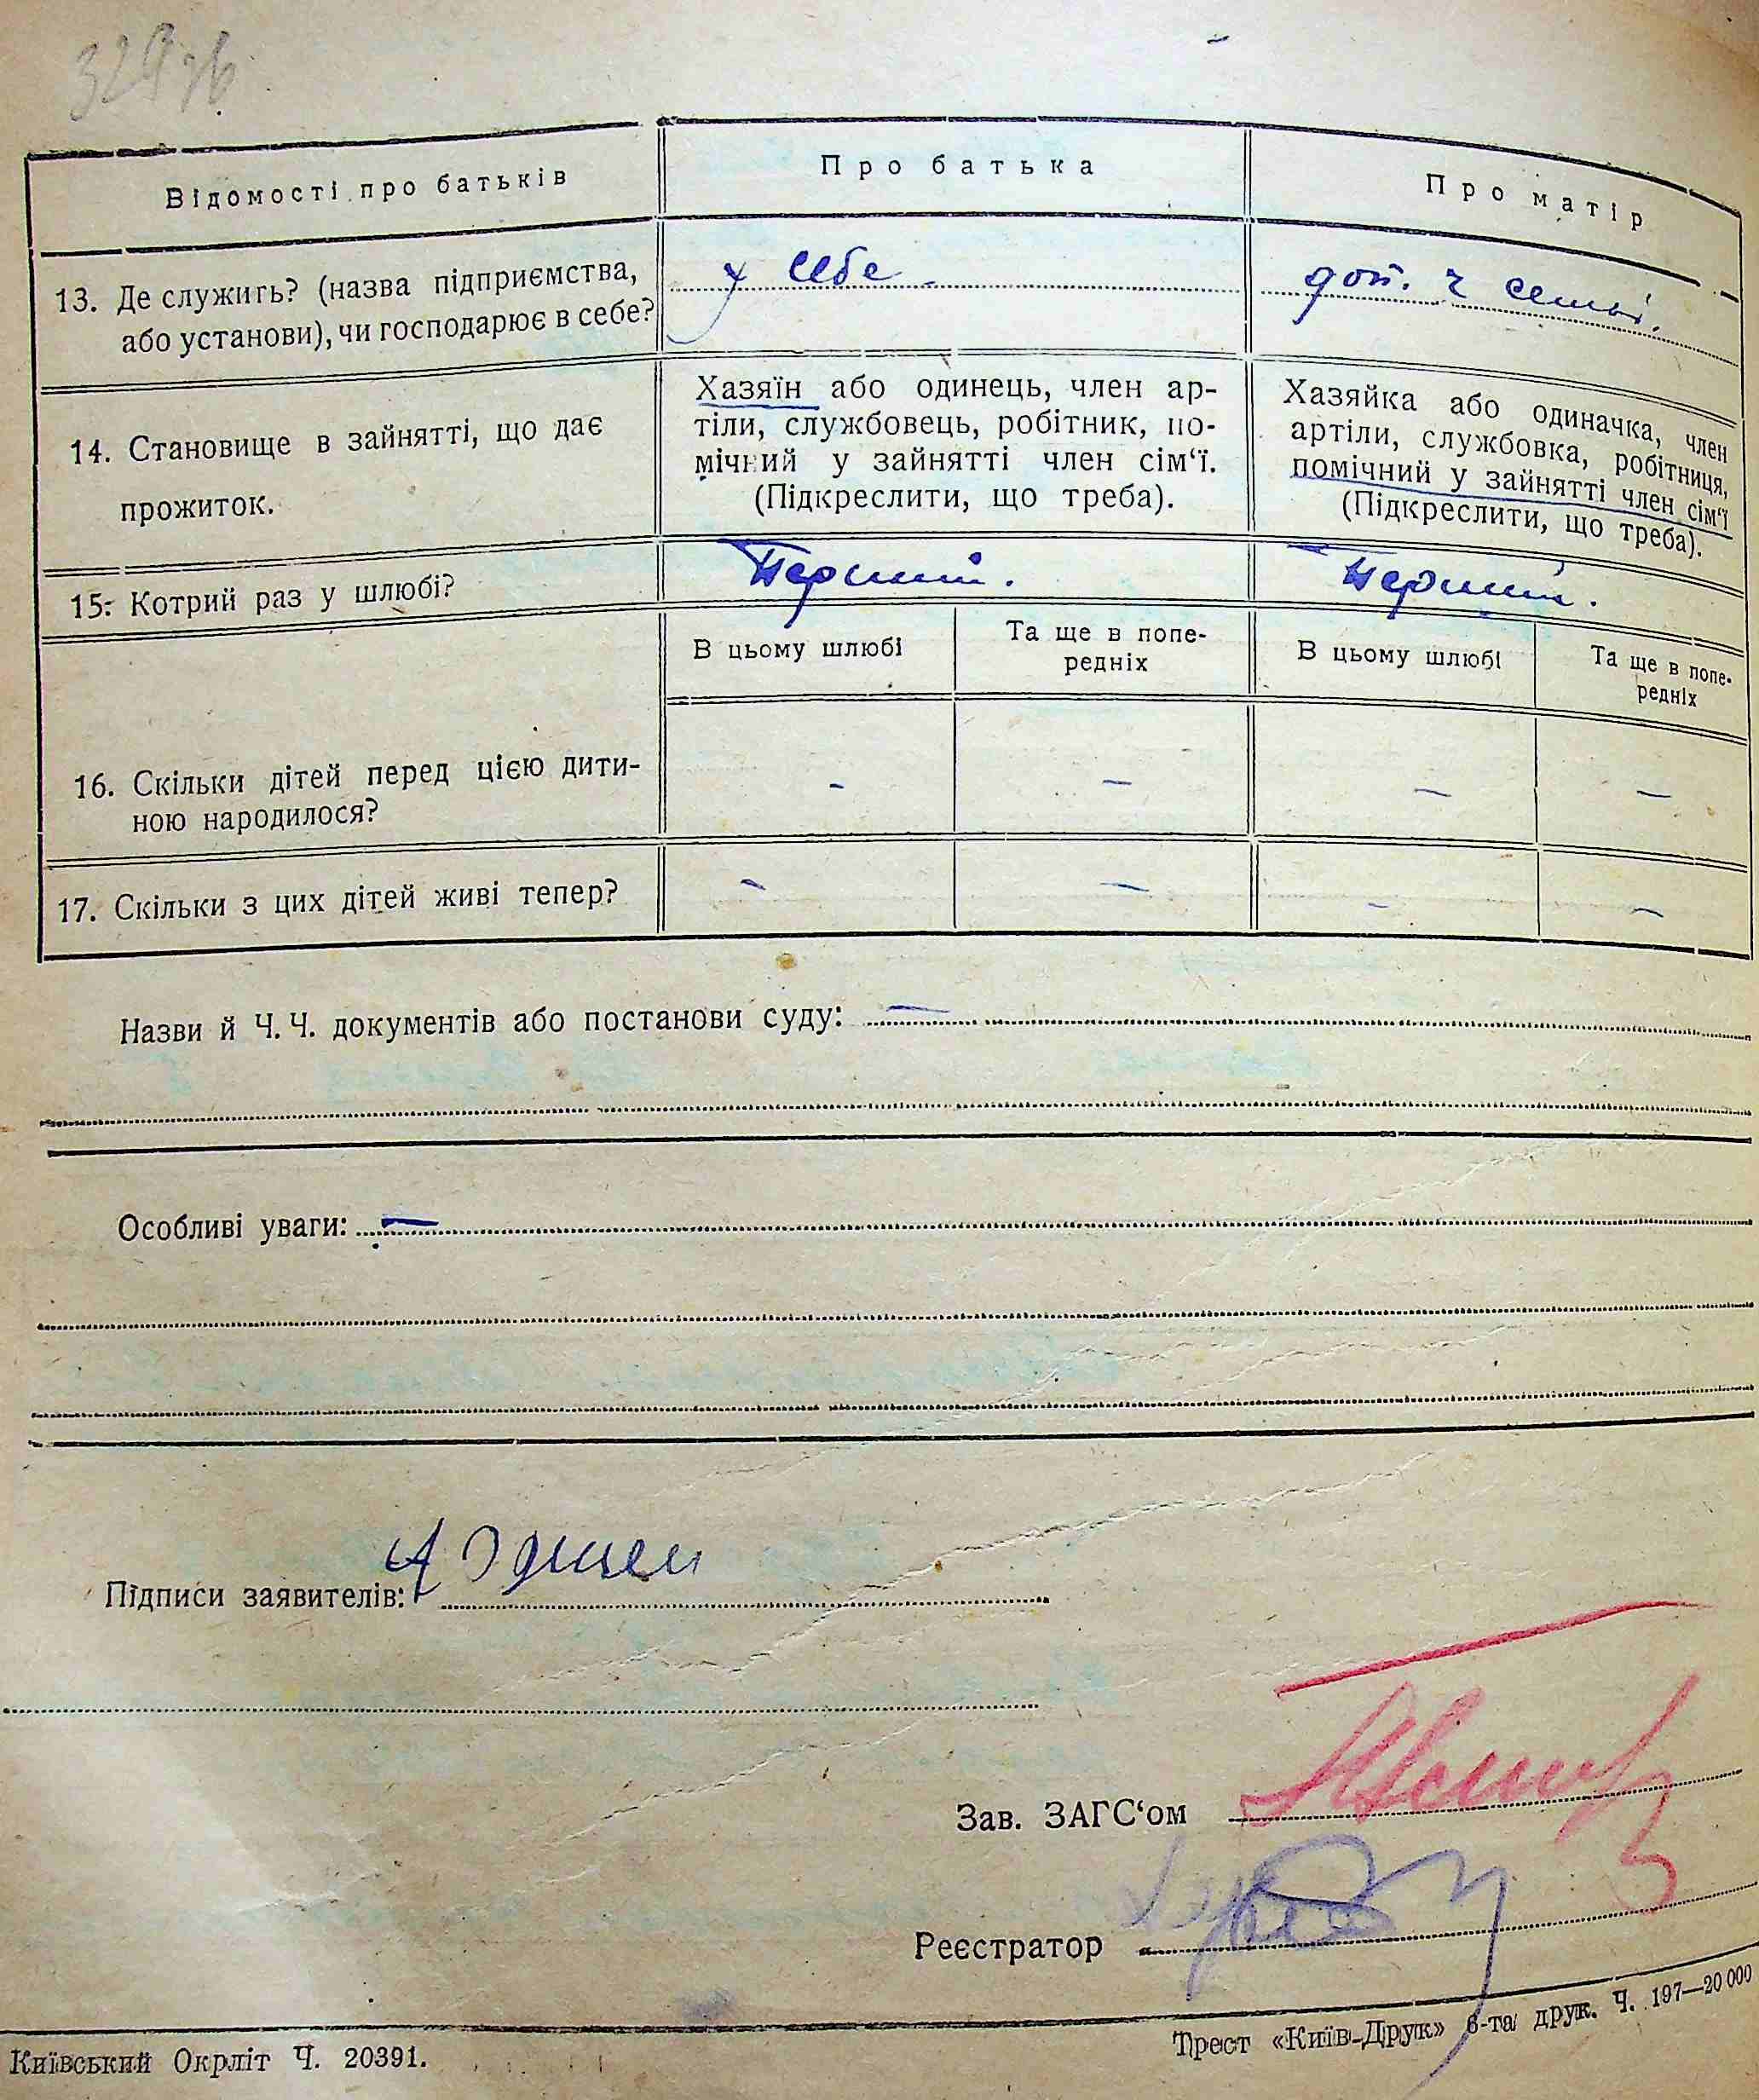 Відомості про батьків
Про батька
Про матір
13. Де служить? (назва підприємства,
або установи), чи господарює в себе?
у себе
доп. в семьі.
14. Становище в зайнятті, що дає
прожиток.
Хазяїн або одинець, член ар-
тіли, службовець, робітник, по-
мічний у зайнятті член сім'ї.
(Підкреслити, що треба).
Хазяйка або одиначка, член
артіли, службовка, робітниця,
помічний у зайнятті член сім'ї
(Підкреслити, що треба).
15. Котрий раз у шлюбі?
Перший.
Перший.
В цьому шлюбі
Та ще в попе-
редніх
В цьому шлюбі
Та ще в попе-
редніх
16. Скільки дітей перед цією дити-
ною народилося?
– – – –
17. Скільки з цих дітей живі тепер?
– – – –
Назви й Ч. Ч. документів або постанови суду: —
Особливі уваги: —
Підписи заявителів:
Зав. ЗАГС'ом
Реєстратор
Київський Окрліт Ч. 20391.
Трест «Київ-Друк» 6-та друк. Ч. 197—20 000